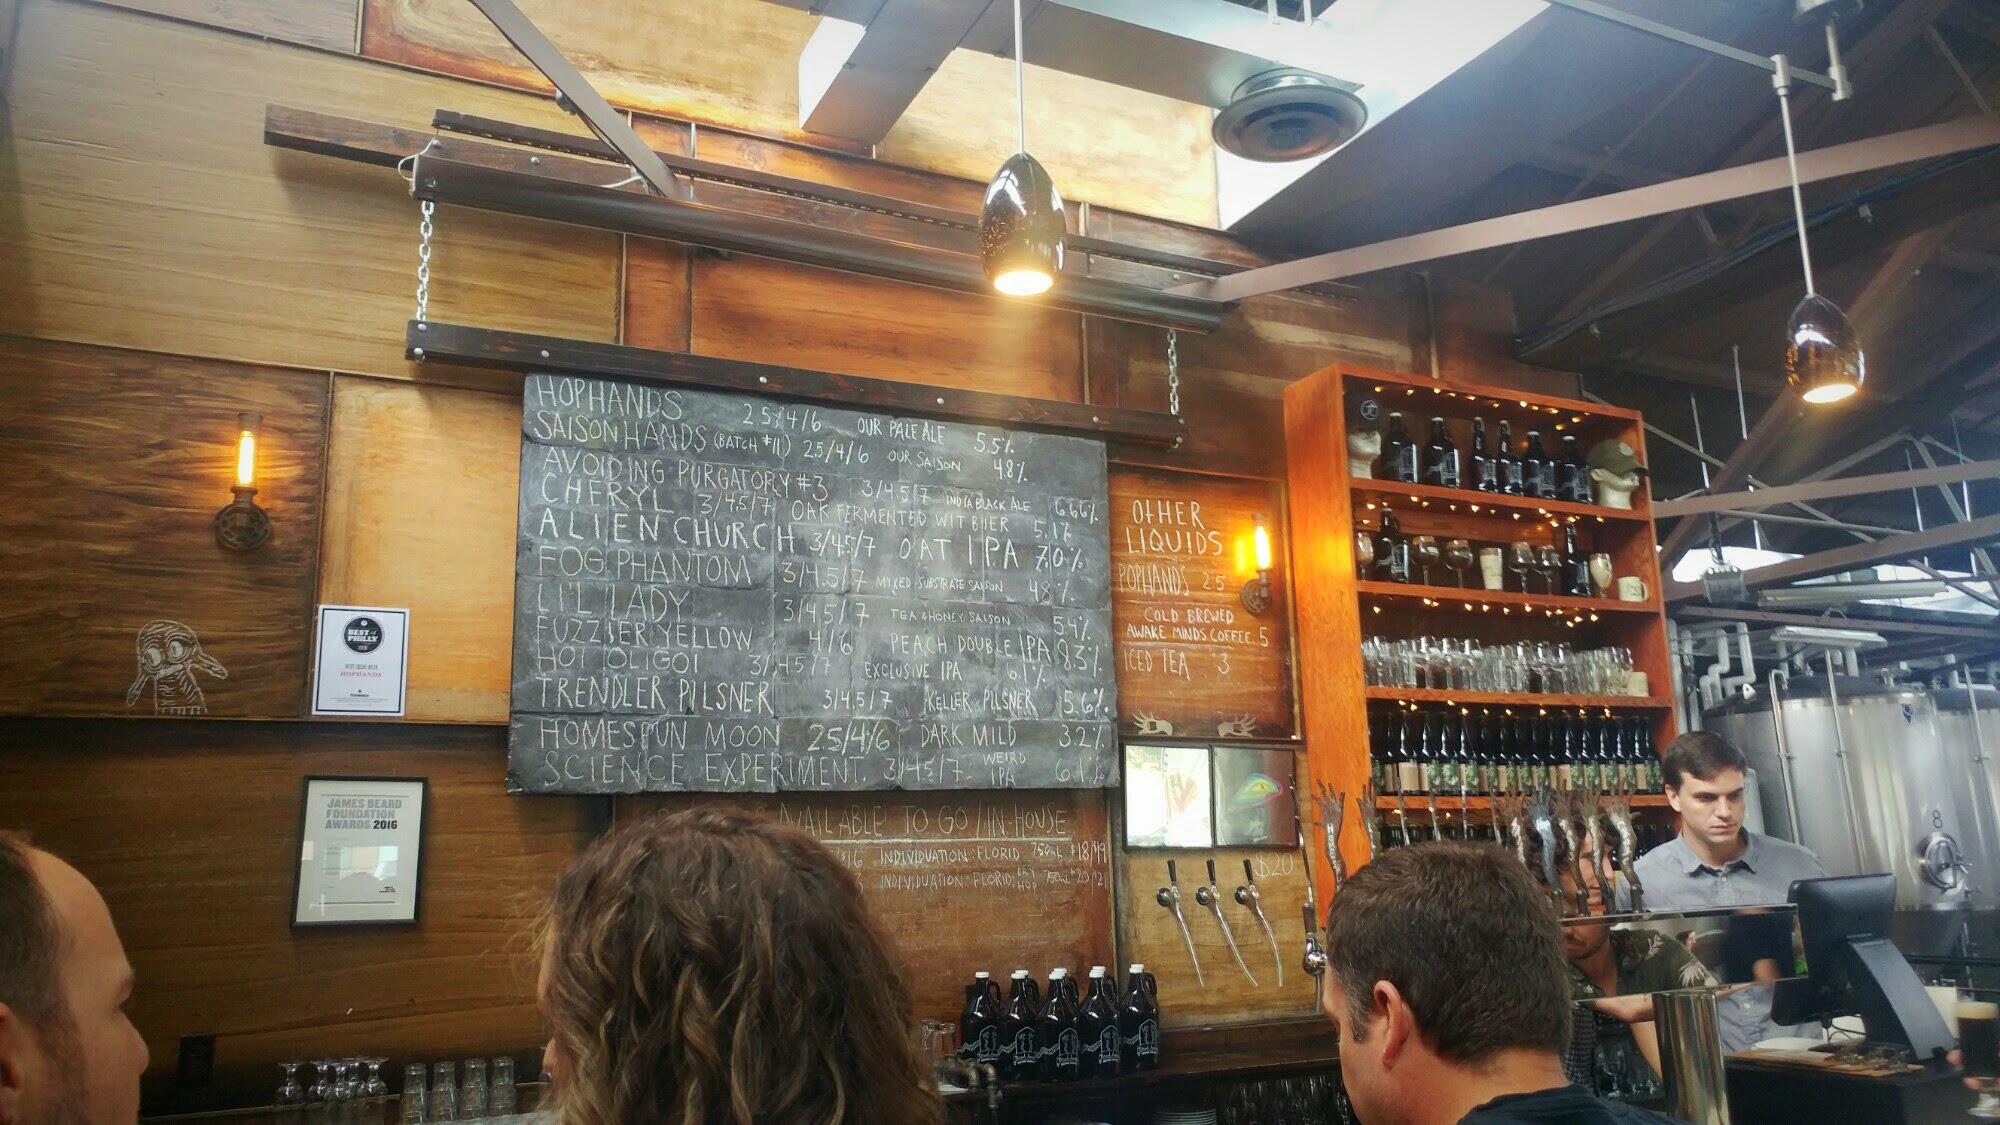 HOPHANDS 2.5/4/6 OUR PALE ALE 5.5%
SAISONHANDS (BATCH #11) 2.5/4/6 OUR SAISON 4.8%
AVOIDING PURGATORY #3 3/4.5/7 INDIA BLACK ALE 6.66%
CHERYL 3/4.5/7 OAK FERMENTED WIT BIER 5.1%
ALIEN CHURCH 3/4.5/7 OAT IPA 7.0%
FOG PHANTOM 3/4.5/7 MIXED SUBSTRATE SAISON 4.8%
LI'L LADY 3/4.5/7 TEA & HONEY SAISON 5.4%
FUZZIER YELLOW 4/6 PEACH DOUBLE IPA 8.3%
3/4.5/7 EXCLUSIVE IPA
TRENDLER PILSNER 3/4.5/7 KELLER PILSNER 5.6%
HOMESPUN MOON 2.5/4/6 DARK MILD 3.2%
SCIENCE EXPERIMENT. 3/4.5/7. WEIRD IPA 6.1%
OTHER
LIQUIDS
POPHANDS 2.5
COLD BREWED
AWAKE MINDS COFFEE. 5
ICED TEA 3
BEST of
PHILLY
BEST LOCAL BEER
HOPHANDS
JAMES BEARD
FOUNDATION
AWARDS 2016
AVAILABLE TO GO/IN-HOUSE
INDIVIDUATION: FLORID 750mL $18/$19
INDIVIDUATION: FLORID: DRY HOP 750mL $20/$21
$20
8